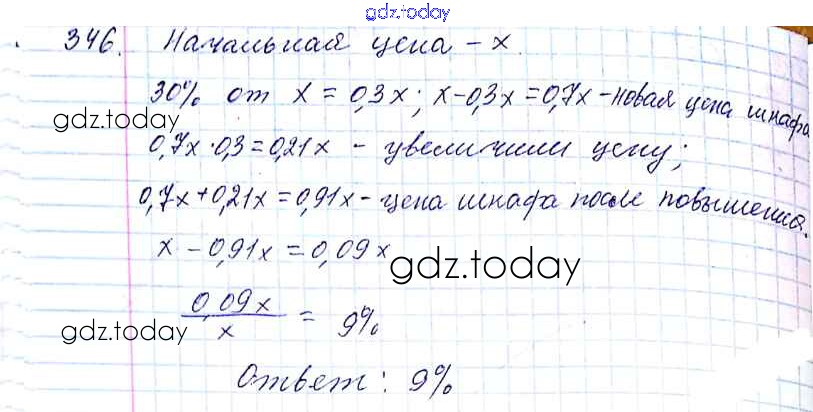 gdz.today
346. Начальная цена – x
30% от x = 0,3x; x-0,3x=0,7x – новая цена шкафа
gdz.today
0,7x·0,3=0,21x – увеличили цену;
0,7x+0,21x=0,91x – цена шкафа после повышения.
x – 0,91x = 0,09x
gdz.today
0,09x / x = 9%
gdz.today
Ответ: 9%